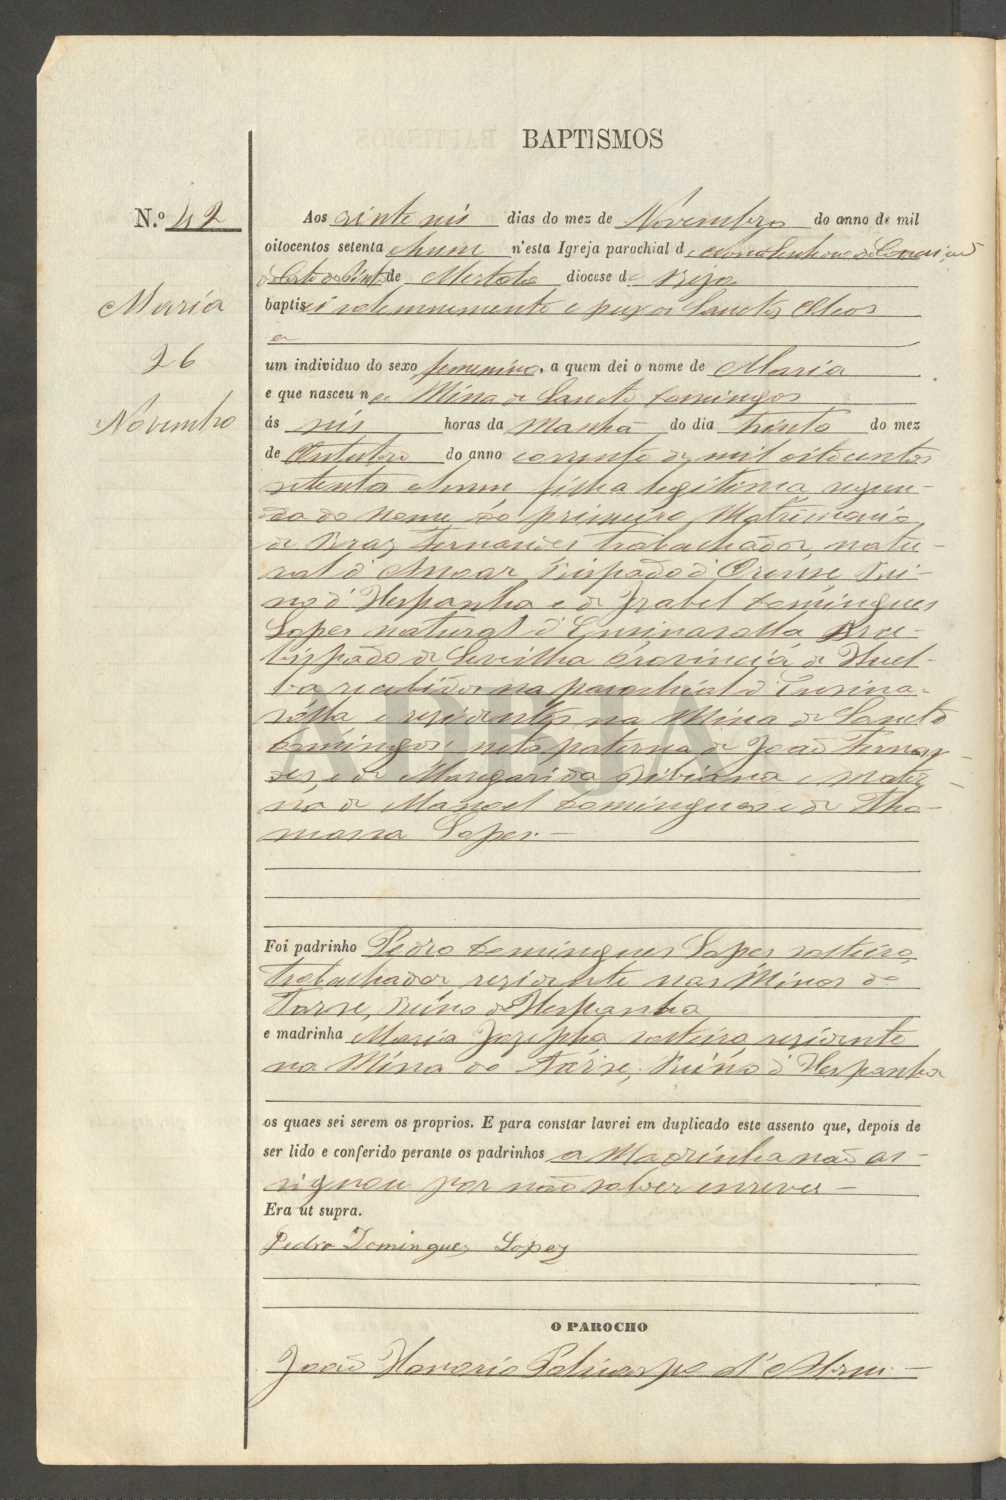 BAPTISMOS
N.º 42
Maria
26
Novembro
Aos vinte seis dias do mez de Novembro do anno de mil
oitocentos setenta e hum n'esta Igreja parochial de Nossa Senhora da Conceiçaõ
de de Mertola diocese de Beja
baptisei solemnemente e puz os Sanctos Oleos
a
um individuo do sexo femenino, a quem dei o nome de Maria
e que nasceu na Mina de Sancto Domingos
ás seis horas da Manhã do dia trinta do mez
de Outubro do anno corrente de mil oitocentos
setenta e hum filha legitima, segun-
da do Nome do primeiro Matrimonio
de Braz Fernandes trabalhador, natu-
ral d' Bispado d'Orense Rei-
no d'Hespanha e de Izabel Domingues
Lopes natural d'Ensinasolla Arce-
bispado de Sevilha Provincia de Huel-
va recebidos na parochial d'Ensina-
sólla e residentes na Mina de Sancto
Domingos: neta paterna de Joaõ Fernan-
des, e de Margarida Bibiana e mater-
na de Manoel Domingues e de Tho-
masia Lopes. —
Foi padrinho Pedro Domingues Lopes solteiro,
trabalhador, residente nas Minas de
Tarse, Reino de Hespanha
e madrinha Maria Jozepha solteira, residente
na Mina de Tarse, Reino d'Hespanha
os quaes sei serem os proprios. E para constar lavrei em duplicado este assento que, depois de
ser lido e conferido perante os padrinhos a Madrinha naõ as-
signou por naõ saber escrever —
Era ut supra.
Pedro Domingues Lopez
O PAROCHO
Joaõ Honorio Policarpo d'
ADBJA